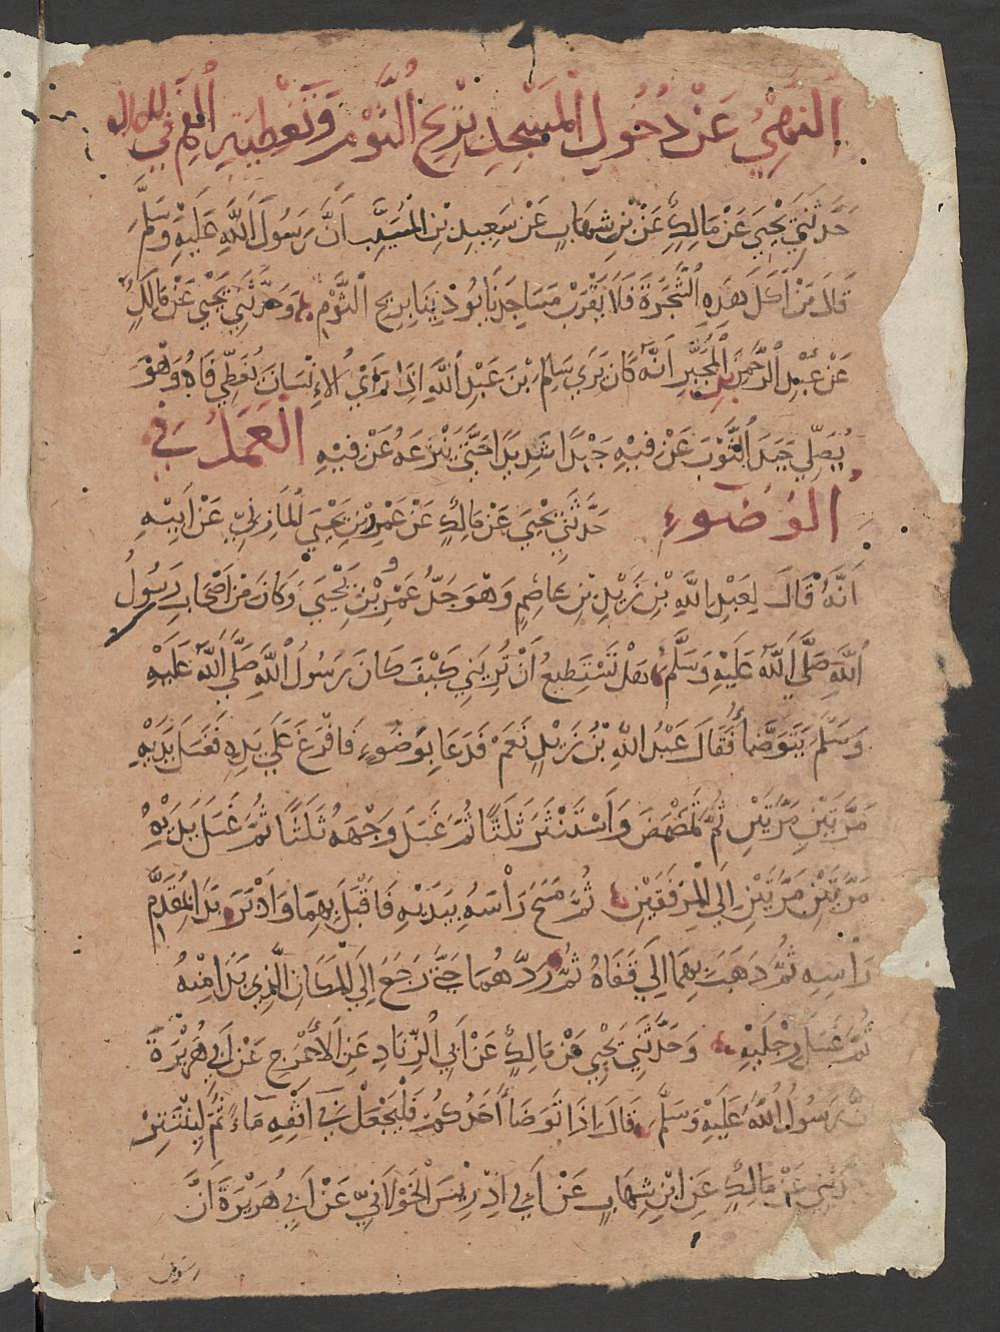 النَّهْيُ عَنْ دُخُولِ الْمَسْجِدِ بِرِيحِ الثُّوْمِ وَتَغْطِيَةِ الْفَمِ فِي الصلاة
حَدَّثَنِي يَحْيَى عَنْ مَالِكٍ عَنْ بْنِ شِهَابٍ عَنْ سَعِيدِ بْنِ الْمُسَيَّبِ اَنَّ رَسُولَ اللَّهِ عَلَيْهِ وَسَلَّمَ
قَالَ مَنْ اَكَلَ هَذِهِ الشَّجَرَةَ فَلَا يَقْرَبْ مَسَاجِدَنَا يُوذِينَا بِرِيحِ الثُّوْمِ وَحَدَّثَنِي يَحْيَى عَنْ مَالِكٍ
عَنْ عَبْدِ الرَّحْمَنِ بن الْمُجَبَّرِ اَنَّهُ كَانَ يَرَى سَالِمَ بْنَ عَبْدِ اللَّهِ اِذَا رَأى الاِنْسَانَ يُغَطِّي فَاهُ وَهُوَ
يُصَلِّي جَبَذَ الثَّوْبَ عَنْ فِيهِ جَبْذًا شَدِيدًا حَتَّى يَنْزِعَهُ عَنْ فِيهِ الْعَمَلُ فِي
الوُضُوءِ حَدَّثَنِي يَحْيَى عَنْ مَالِكٍ عَنْ عَمْرِو بْنِ يَحْيَى الْمَازِنِيِّ عَنْ اَبِيهِ
اَنَّهُ قَالَ لِعَبْدِ اللَّهِ بْنِ زَيْدِ بْنِ عَاصِمٍ وَهُوَ جَدُّ عَمْرِو بْنِ يَحْيَى وَكَانَ مِنْ اَصْحَابِ رَسُولِ
اللَّهِ صَلَّى اللَّهُ عَلَيْهِ وَسَلَّمَ هَلْ تَسْتَطِيعُ اَنْ تُرِيَنِي كَيْفَ كَانَ رَسُولُ اللَّهِ صَلَّى اللَّهُ عَلَيْهِ
وَسَلَّمَ يَتَوَضَّأُ فَقَالَ عَبْدُ اللَّهِ بْنُ زَيْدٍ نَعَمْ فَدَعَا بِوَضُوءٍ فَافْرَغَ عَلَى يَدِهِ فَغَسَلَ يَدَيْهِ
مَرَّتَيْنِ مَرَّتَيْنِ ثُمَّ تَمَضْمَضَ وَاسْتَنْثَرَ ثَلَثًا ثُمَّ غَسَلَ وَجْهَهُ ثَلَثًا ثُمَّ غَسَلَ يَدَيْهِ
مَرَّتَيْنِ مَرَّتَيْنِ اِلَى الْمِرْفَقَيْنِ ثُمَّ مَسَحَ رَاْسَهُ بِيَدَيْهِ فَاَقْبَلَ بِهِمَا وَادْبَرَ بَدَا بمُقَدَّمِ
رَاْسِهِ ثُمَّ ذَهَبَ بِهِمَا اِلَى قَفَاهُ ثُمَّ رَدَّهُمَا حَتَّى رَجَعَ اِلَى الْمَكَانِ الَّذِي بَدَا مِنْهُ
ثُمَّ غَسَلَ رِجْلَيْهِ وَحَدَّثَنِي يَحْيَى عَنْ مَالِكٍ عَنْ اَبِي الزِّنَادِ عَنِ الْاَعْرَجِ عَنْ اَبِي هُرَيْرَةَ
نَّ رَسُولُ اللَّهُ عَلَيْهِ وَسَلَّمَ قَالَ اِذَا تَوَضَّأَ اَحَدُكُمْ فَلْيَجْعَلْ فِي اَنْفِهِ مَاءً ثُمَّ لِيَنْتَثِرْ
دثَنِي عَنْ مَالِكٍ عَنِ ابْنِ شِهَابٍ عَنْ اَبِي اِدْرِيسَ الْخَوْلَانِيِّ عَنْ اَبِي هُرَيْرَةَ اَنَّ
رسول